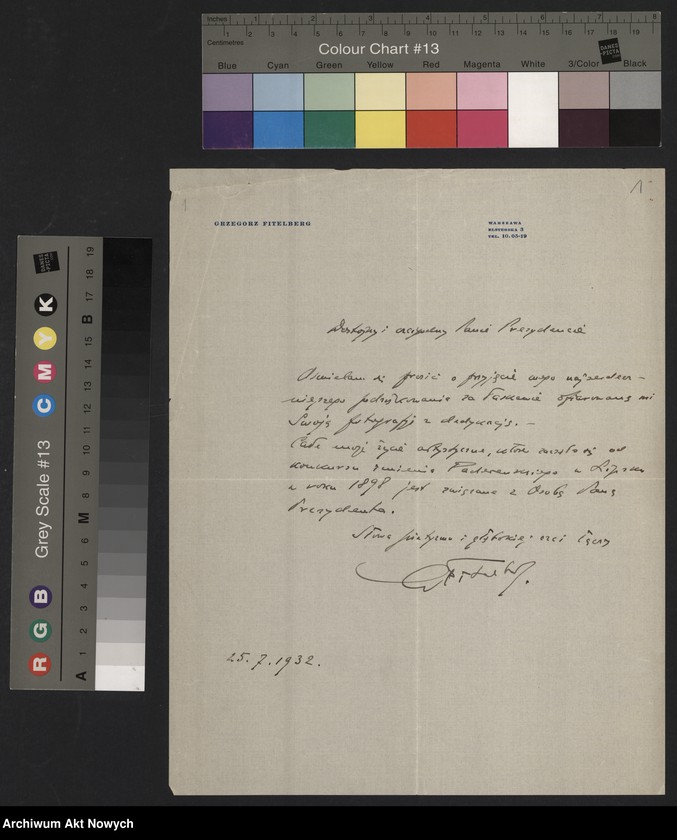 Inches 1 2 3 4 5 6 7 8
Centimetres 1 2 3 4 5 6 7 8 9 10 11 12 13 14 15 16 17 18 19
Colour Chart #13
DANES-PICTA
Blue Cyan Green Yellow Red Magenta White 3/Color Black
1
1
GRZEGORZ FITELBERG
WARSZAWA
ELSTERSKA 3
TEL. 10.05-12
Dostojny i czcigodny Panie Prezydencie
Ośmielam się prosić o przyjęcie mego najserdecz-
niejszego podziękowania za łaskawie ofiarowaną mi
Swoją fotografję z dedykacją. —
Całe moje życie artystyczne, które zaczęło się od
konkursu imienia Paderewskiego w Lipsku
w roku 1898 jest związane z Osobą Pana
Prezydenta.
Słowa pietyzmu i głębokiej czci łączę
GFitelberg.
25.7.1932.
Grey Scale #13
R G B C M Y K
A 1 2 3 4 5 6 M 8 9 10 11 12 13 14 15 B 17 18 19
DANES-PICTA
Archiwum Akt Nowych